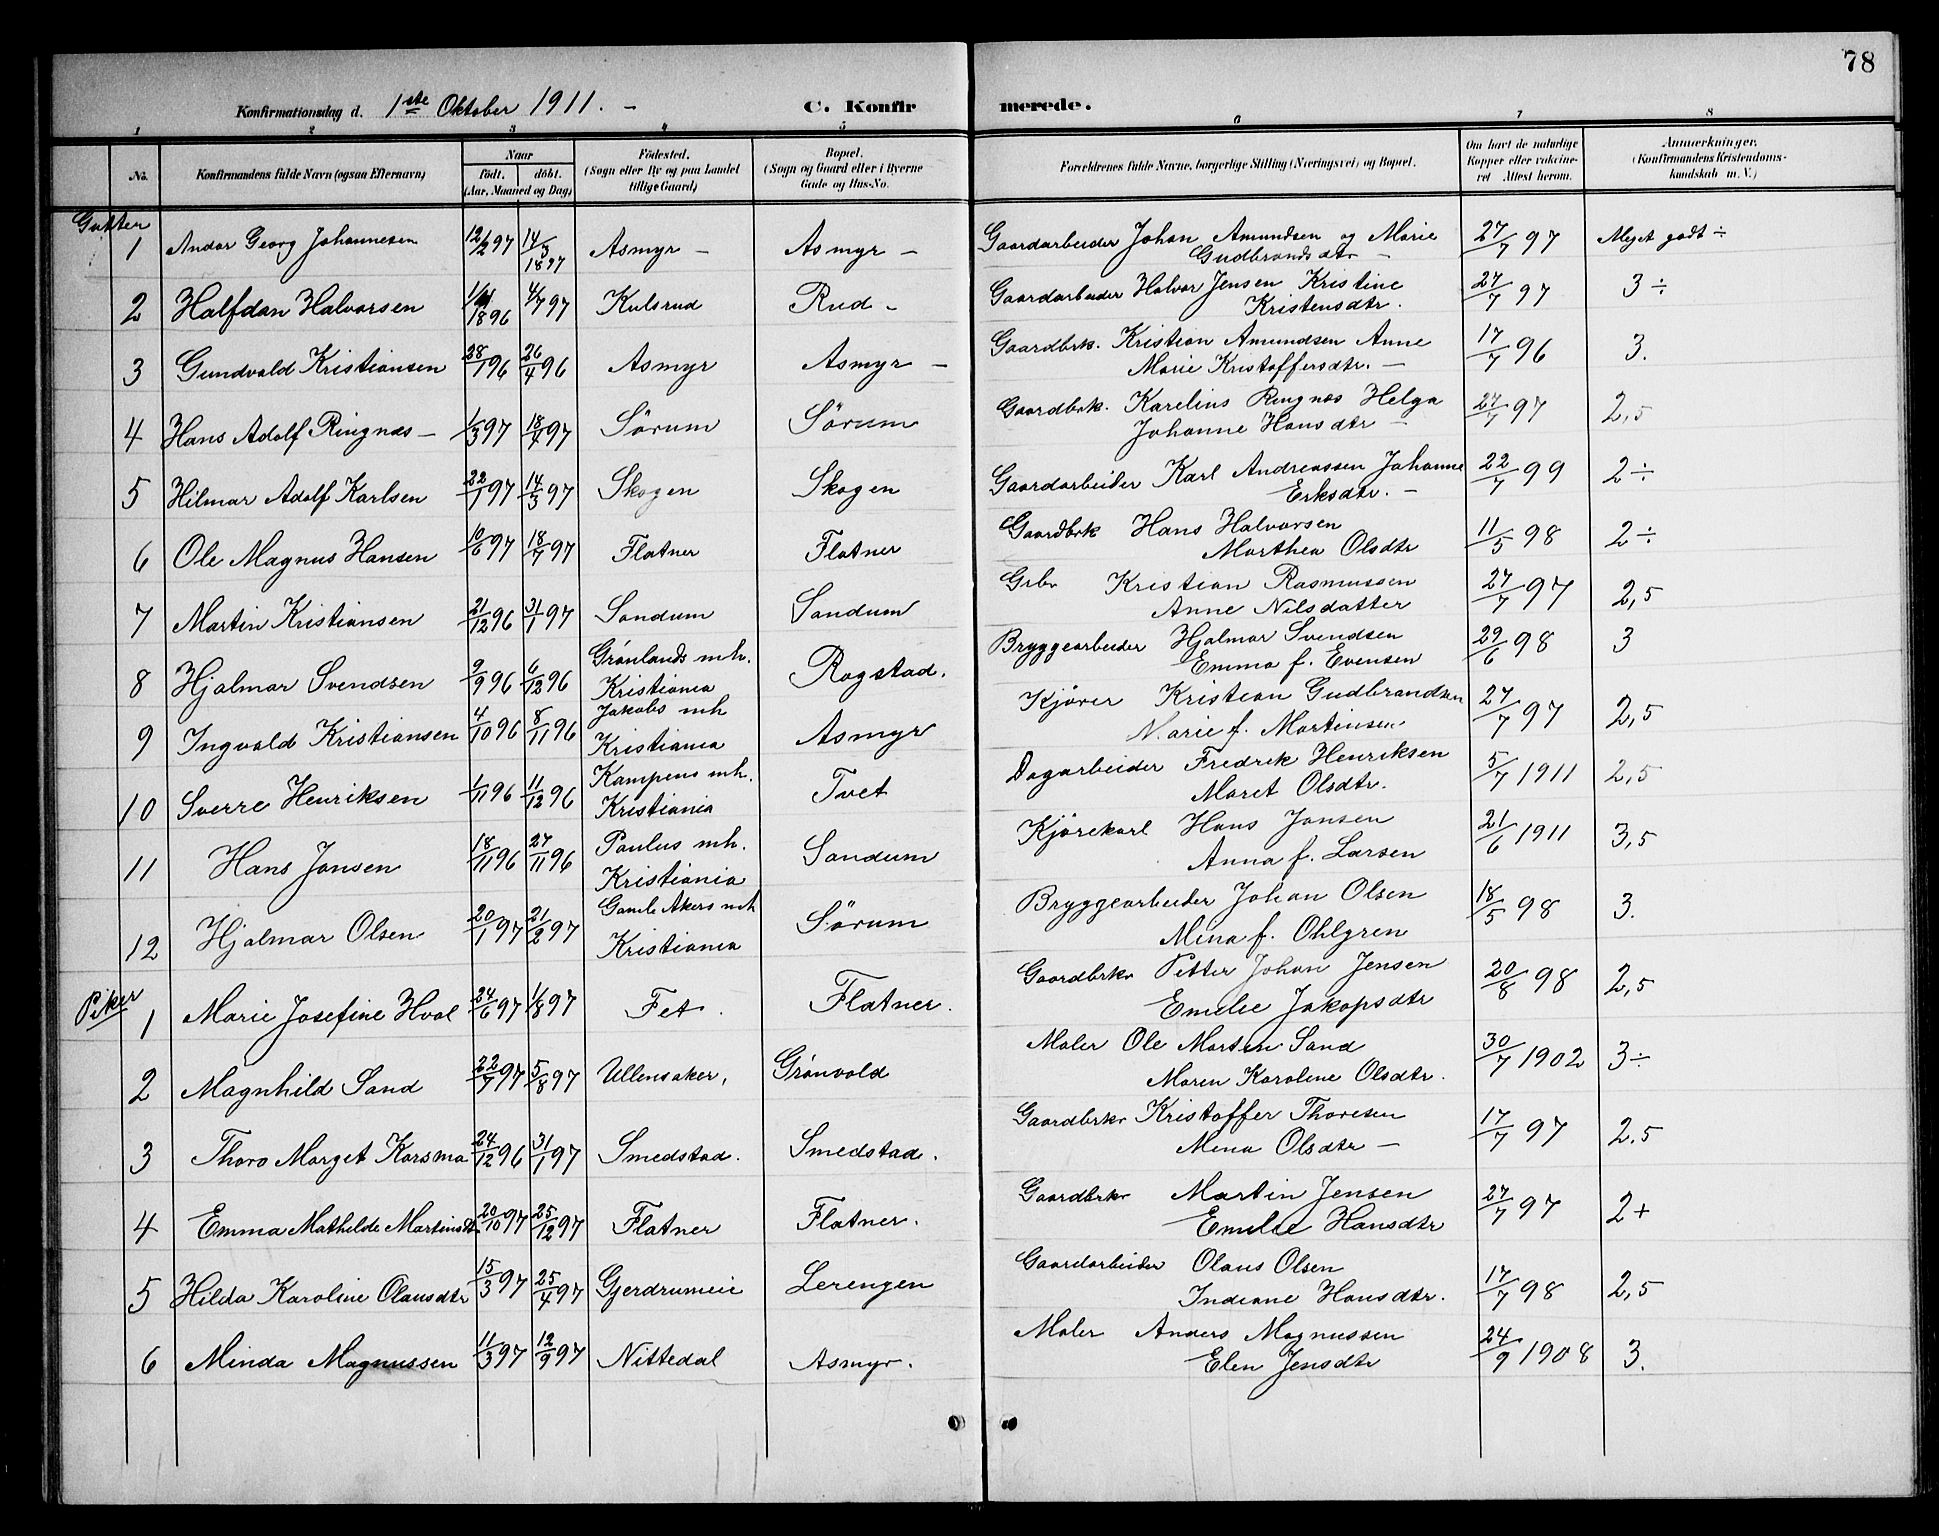 78
Konfirmationsdag d. 1ste Oktober 1911. - C. Konfirmerede.
1 2 3 4 5 6 7 8
No. Konfirmandens fulde Navn (ogsaa Efternavn) Naar født. døbt. (Aar, Maaned og Dag) Fødested. (Sogn eller By og paa Landet tillige Gaard) Bopæl. (Sogn og Gaard eller i Byerne Gade og Hus-No. Forældrenes fulde Navne, borgerlige Stilling (Næringsvei) og Bopæl. Om havt de naturlige Kopper eller vakcineret Attest herom. Anmærkninger. (Konfirmandens Kristendomskundskab m. V.)
Gutter
1 Andor Georg Johannesen 12/2 97 14/3 1897 Asmyr - Asmyr - Gaardarbeider Johan Amundsen og Marie Gudbrandsdtr - 27/7 97 Meget godt ÷
2 Halfdan Halvorsen 1896 4/7 97 Kulsrud Rud - Gaardarbeider Halvor Jensen Kristine Kristensdtr. 27/7 97 3 ÷
3 Gundvald Kristiansen 28/1 96 26/4 96 Asmyr Asmyr - Gaardbrk. Kristian Amundsen Anne Marie Kristoffersdtr. - 17/7 96 3.
4 Hans Adolf Ringnæs - 1/3 97 18/4 97 Sörum Sörum Gaardbrk. Karelius Ringnæs Helga Johanne Hansdtr - 27/7 97 2,5
5 Hilmar Adolf Karlsen 22/1 97 14/3 97 Skogen Skogen Gaardarbeider Karl Andreassen Johanne Eriksdtr. - 22/7 99 2 ÷
6 Ole Magnus Hansen 10/6 97 18/7 97 Flatner Flatner Gaardbrk Hans Halvorsen Marthea Olsdtr 11/5 98 2 ÷
7 Martin Kristiansen 21/12 96 31/1 97 Sandum Sandum Grbr Kristian Rasmussen Anne Nilsdatter 27/7 97 2,5
8 Hjalmar Svendsen 9/9 96 6/12 96 Grønlands mh. Kristiania Rogstad. Bryggearbeider Hjalmar Svendsen Emma f. Evensen 29/6 98 3
9 Ingvald Kristiansen 4/10 96 8/11 96 Jakobs mh Kristiania Asmyr Kjörer Kristian Gudbrandsen Marie f. Martinsen 27/7 97 2,5
10 Sverre Henriksen 1/11 96 11/12 96 Kampens mh. Kristiania Tvet Dagarbeider Fredrik Henriksen Maret Olsdtr. 5/7 1911 2,5
11 Hans Jansen 18/11 96 27/11 96 Paulus mh. Kristiania Sandum Kjörekarl Hans Jansen Anna f. Larsen 21/6 1911 3,5
12 Hjalmar Olsen 20/1 97 21/2 97 Gamle Akers mh Kristiania Sörum Bryggearbeider Johan Olsen Mina f. Ohlgren 18/5 98 3.
Piker
1 Marie Josefine Hval 24/6 97 1/8 97 Fet. Flatner. Gaardbrkr Petter Johan Jensen Emelie Jakopsdtr 20/8 98 2,5
2 Magnhild Sand 22/7 97 5/8 97 Ullensaker, Grönvold Maler Ole Martin Sand Maren Karoline Olsdtr. 30/7 1902 3 ÷
3 Thora Marget Korsmo 24/12 96 31/1 97 Smedstad. Smedstad. Gaardbrkr Kristoffer Thoresen Mina Olsdtr - 17/7 97 2.5
4 Emma Mathilde Martinsdtr. 20/10 97 25/12 97 Flatner Flatner. Gaardbrkr Martin Jensen Emelie Hansdtr 27/7 97 2+
5 Hilda Karoline Olausdtr 15/3 97 25/4 97 Gjerdrumeie Lerengen Gaardarbeider Olaus Olsen Indiane Hansdtr. 17/7 98 2,5
6 Minda Magnussen 11/3 97 12/9 97 Nittedal Asmyr. Maler Anders Magnussen Elen Jensdtr 24/9 1908 3.